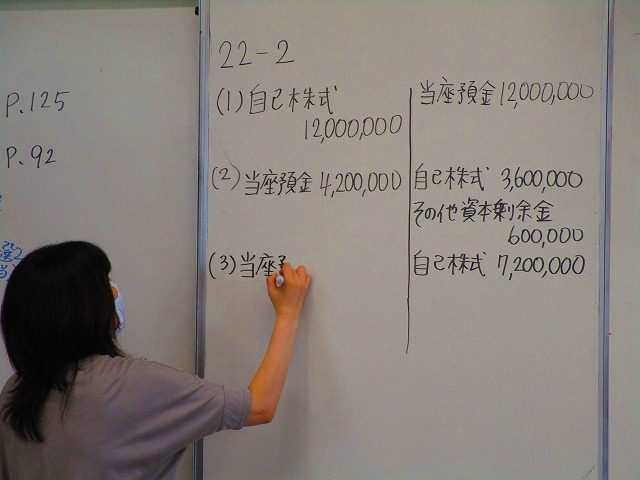 P.125
P.92
22-2
(1)自己株式
12,000,000
当座預金12,000,000
(2)当座預金 4,200,000
自己株式 3,600,000
その他資本剰余金
600,000
(3)当座
自己株式 7,200,000